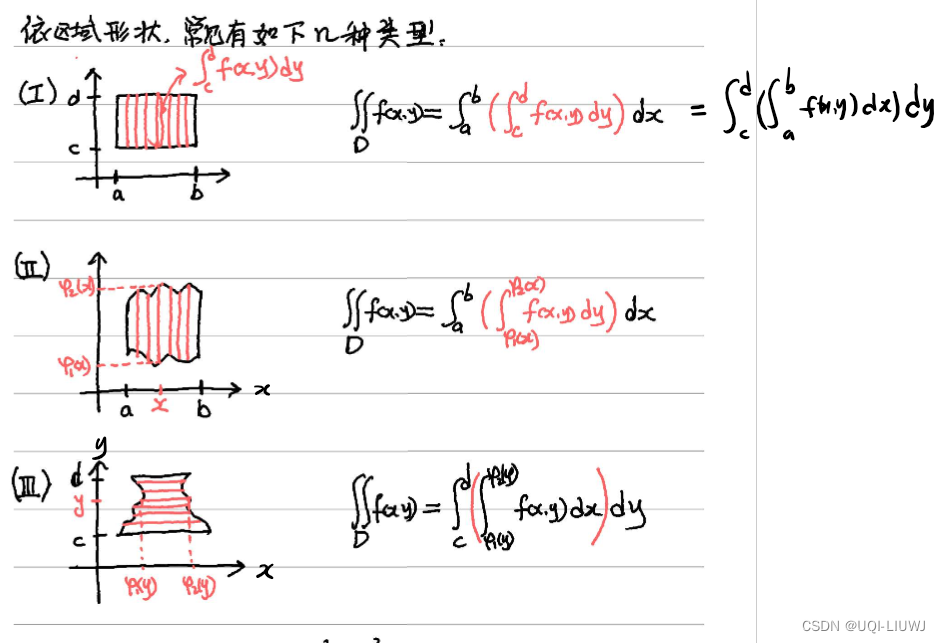 依区域形状,常见有如下几种类型:
(I) d c a b ∫_c^d f(x,y)dy
∬_D f(x,y) = ∫_a^b (∫_c^d f(x,y) dy) dx = ∫_c^d (∫_a^b f(x,y) dx) dy
(II) φ₂(x) φ₁(x) a x b x
∬_D f(x,y) = ∫_a^b (∫_{φ₁(x)}^{φ₂(x)} f(x,y) dy) dx
y
(III) d y c φ₁(y) φ₂(y) x
∬_D f(x,y) = ∫_c^d (∫_{φ₁(y)}^{φ₂(y)} f(x,y) dx) dy
CSDN @UQI-LIUWJ